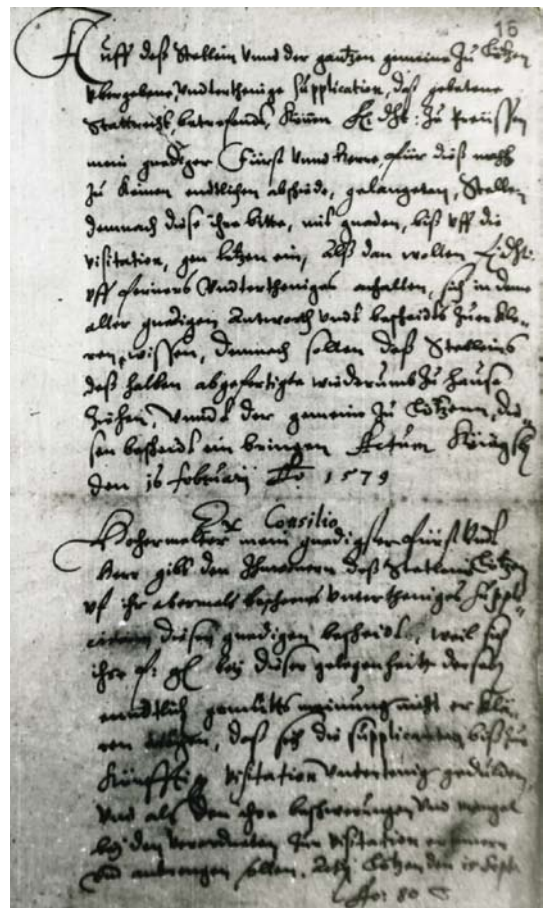 16
Auff deß Stetlein unnd der gantzen gemeine zu Lötzen
ubergebene, underthenige Supplication, daß gebetene
Stattrecht, betreffende, können F. Dht: zu Preüssen
mein gnediger Fürst unnd Herre, für dieß mahl
zu keinem endtlichen abschiede, gelangen, Stellen
demnach diese ihre bitte, mit gnaden, biß uff die
visitation, gen Lötzen ein, alß dan wollen F. Dht:
uff ferners underthenigs anhalten, sich in deme
aller gnedigen Antworth unnd bescheidts zuer kle-
ren, wissen, demnach sollen deß Stetleins
deß halben abgefertigte widerumb zu hause
ziehen, unnd der gemeine zu Lötzenn, die-
sen bescheidt ein bringen Actum Königsb
den 16 februarij Ao: 1579
Ex Consilio
Hochermelter mein gnedigster Fürst und
Herr gibt den Einwonern deß Stetleins Lötzen
uf ihr abermals beschenes unterthenigs suppli-
cieren diesen gnedigen bescheidt, weil sich
ihre f: gl bey dieser gelegenheitt dersalb
enndtlich gemütts meinung nicht erklä-
ren, daß sich die supplicanten biß zur
künfftigen visitation untertenig gedulden,
und als den ihre beschwerungen und mengel
bey den verordneten zur visitation erinnern
und anbrengen sollen, Lötzen den
Ao: 80